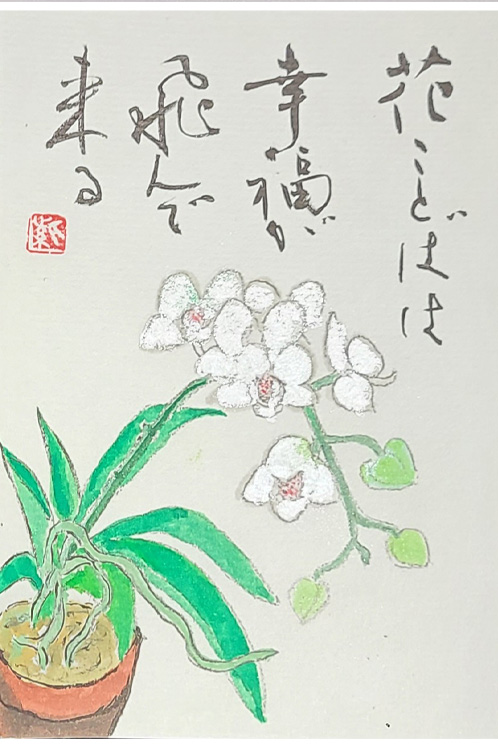 花ことばは
幸福が
飛んで
来る